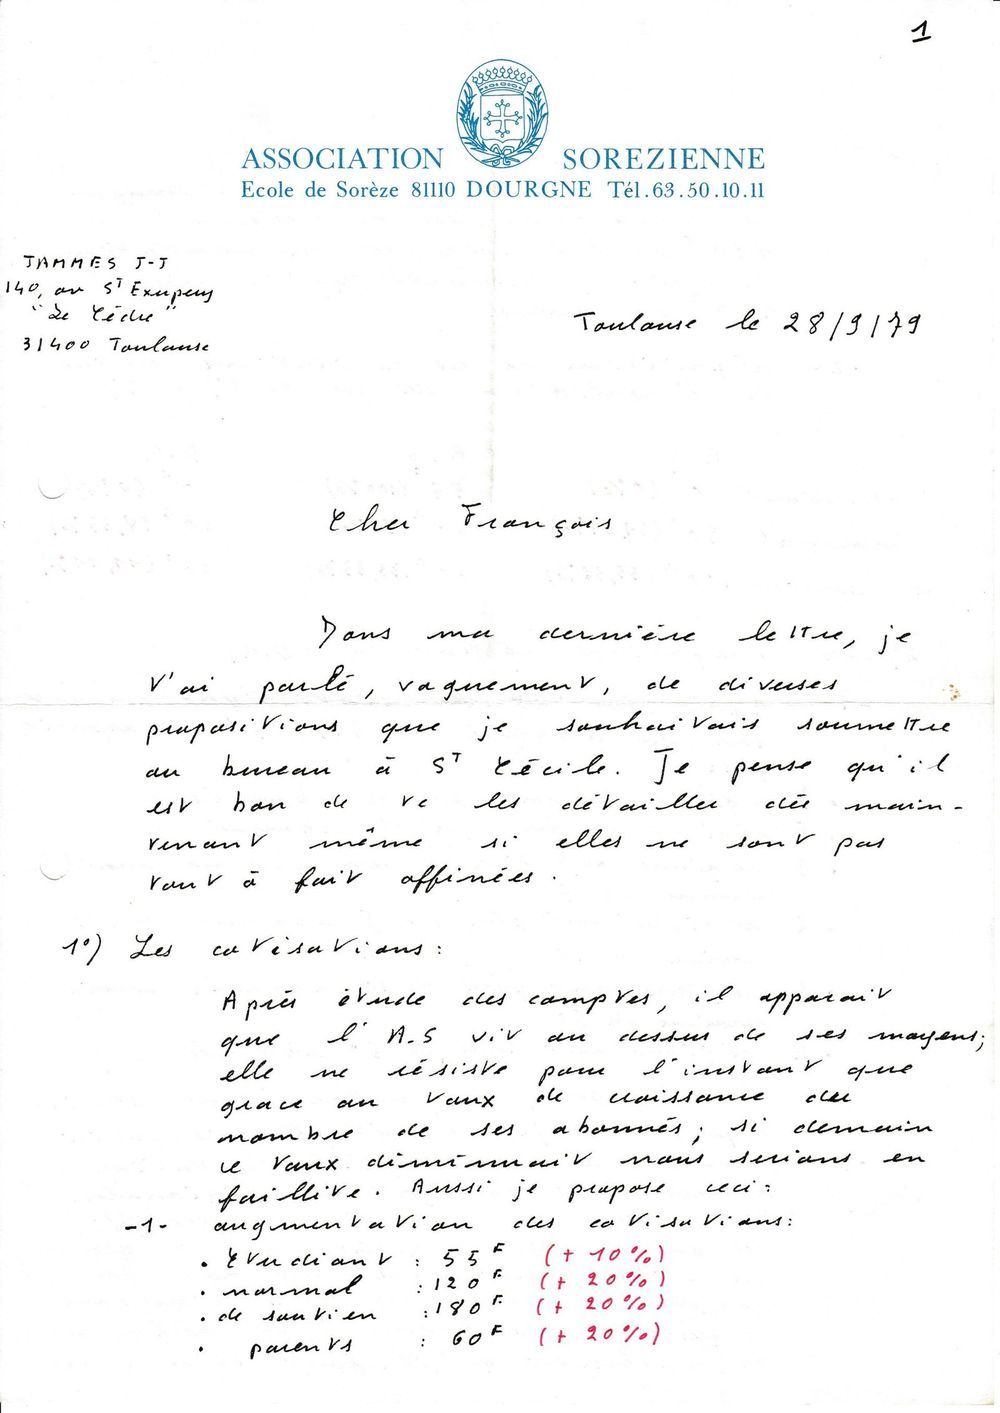 1
ASSOCIATION SOREZIENNE
Ecole de Sorèze 81110 DOURGNE Tél.63.50.10.11
JAMMES J-J
140, av St Exupery
"Le Cèdre"
31400 Toulouse
Toulouse le 28/9/79
Cher François
Dans ma dernière lettre, je
t'ai parlé, vaguement, de diverses
propositions que je souhaitais soumettre
au bureau à St Cécile. Je pense qu'il
est bon de te les détailler dès main-
tenant même si elles ne sont pas
tout à fait affinées.
1°) Les cotisations :
Après étude des comptes, il apparait
que l'A.S vit au dessus de ses moyens;
elle ne résiste pour l'instant que
grace au taux de croissance du
nombre de ses abonnés; si demain
ce taux diminuait nous serions en
faillite. Aussi je propose ceci :
-1- augmentation des cotisations :
. Etudiant : 55F (+ 10%)
. normal : 120F (+ 20%)
. de soutien : 180F (+ 20%)
. parents : 60F (+ 20%)